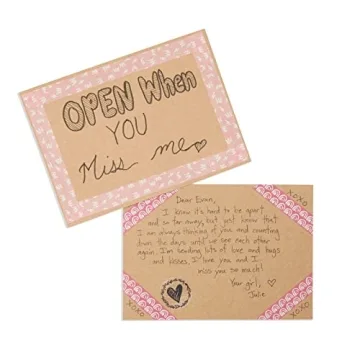 OPEN When
YOU
Miss me
XOXO
Dear Evan,
I know it's hard to be apart
and so far away, but just know that
I am always thinking of you and counting
down the days until we see each other
again. I'm sending lots of love and hugs
and kisses. I love you and I
miss you so much!
Your girl,
Julie
XOXO
XOXO